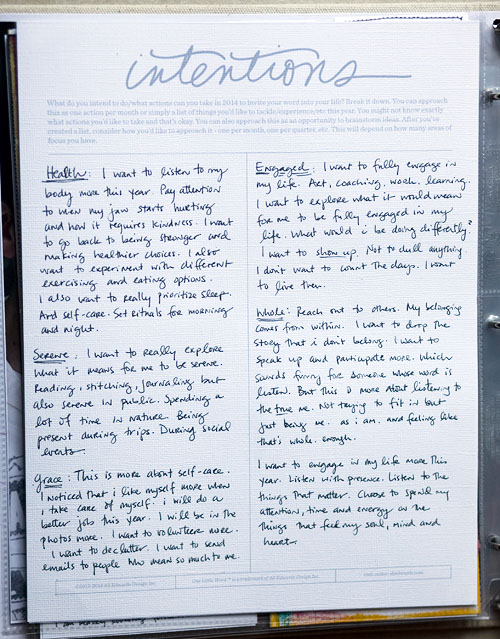 intentions
What do you intend to do/what actions can you take in 2014 to invite your word into your life? Break it down. You can approach
this as one action per month or simply a list of things you'd like to tackle/experience/etc this year. You might not know exactly
what actions you'd like to take and that's okay. You can also approach this as an opportunity to brainstorm ideas. After you've
created a list, consider how you'd like to approach it - one per month, one per quarter, etc. This will depend on how many areas of
focus you have.
Health: I want to listen to my
body more this year. Pay attention
to when my jaw starts hurting
and how it requires kindness. I want
to go back to being stronger and
making healthier choices. I also
want to experiment with different
exercising and eating options.
I also want to really prioritize sleep.
And self-care. Set rituals for morning
and night.
Serene: I want to really explore
what it means for me to be serene.
Reading, stitching, journaling but
also serene in public. Spending a
lot of time in nature. Being
present during trips. During social
events.
Grace: This is more about self-care.
I noticed that i like myself more when
i take care of myself. i will do a
better job this year. I will be in the
photos more. I want to volunteer more.
I want to declutter. I want to send
emails to people who mean so much to me.
Engaged: I want to fully engage in
my life. Art, coaching, work, learning.
I want to explore what it would mean
for me to be fully engaged in my
life. What would i be doing differently?
I want to show up. Not to dull anything
I don't want to count the days. I want
to live them.
Whole: Reach out to others. My belonging
comes from within. I want to drop the
story that i don't belong. I want to
speak up and participate more. Which
sounds funny for someone whose word is
listen. But this is more about listening to
the true me. Not trying to fit in but
just being me. as i am. and feeling like
that's whole. enough.
I want to engage in my life more this
year. Listen with presence. Listen to the
things that matter. Choose to spend my
attention, time and energy on the
things that feel my soul, mind and
heart.
©2012-2014 Ali Edwards Design Inc.
One Little Word™ is a trademark of Ali Edwards Design, Inc.